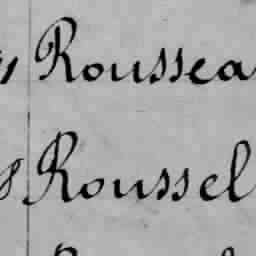 Roussea
Roussel